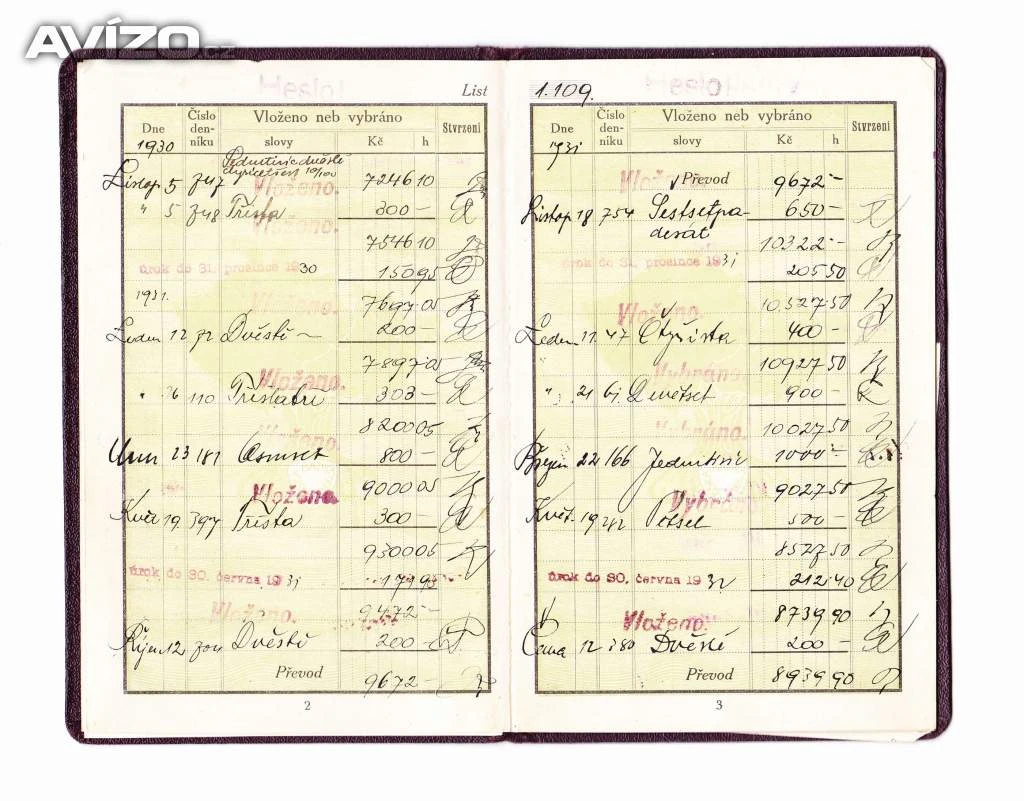 AVÍZO.cz
List
Dne Číslo denníku Vloženo neb vybráno Stvrzení
slovy Kč h
1930
Listop 5 747 Vloženo. 7246 10
" 5 748 Třista 300 —
Vloženo.
7546 10
úrok do 31. prosince 1930 150 95
1931. 7697 05
Vloženo.
Leden 12 72 Dvěstě — 200 —
7897 05
Vloženo.
" 26 110 Třistatři 303 —
8200 05
Vloženo.
Únor 23 181 Osmset 800 —
9000 05
Vloženo.
Kvě 19 397 Třista 300 —
9300 05
úrok do 30. června 1931 179 95
9472 —
Vloženo.
Říjen 12 704 Dvěstě 200 —
Převod 9672 —
2
1.109.
Dne Číslo denníku Vloženo neb vybráno Stvrzení
slovy Kč h
1931
Vloženo. Převod 9672 —
Listop 18 754 Šestsetpa- 650 —
desát
10322 —
úrok do 31. prosince 1931 205 50
10.527 50
Vloženo.
Leden 11 47 Čtyřista 400 —
10927 50
Vybráno.
" 21 61 Devětset 900 —
10027 50
Vybráno.
Březen 22 166 Jedentisíc 1000 —
9027 50
Vybráno.
Květ. 19 Pětset 500 —
8527 50
úrok do 30. června 1932 212 40
8739 90
Vloženo.
12 380 Dvěstě 200 —
Převod 8939 90
3